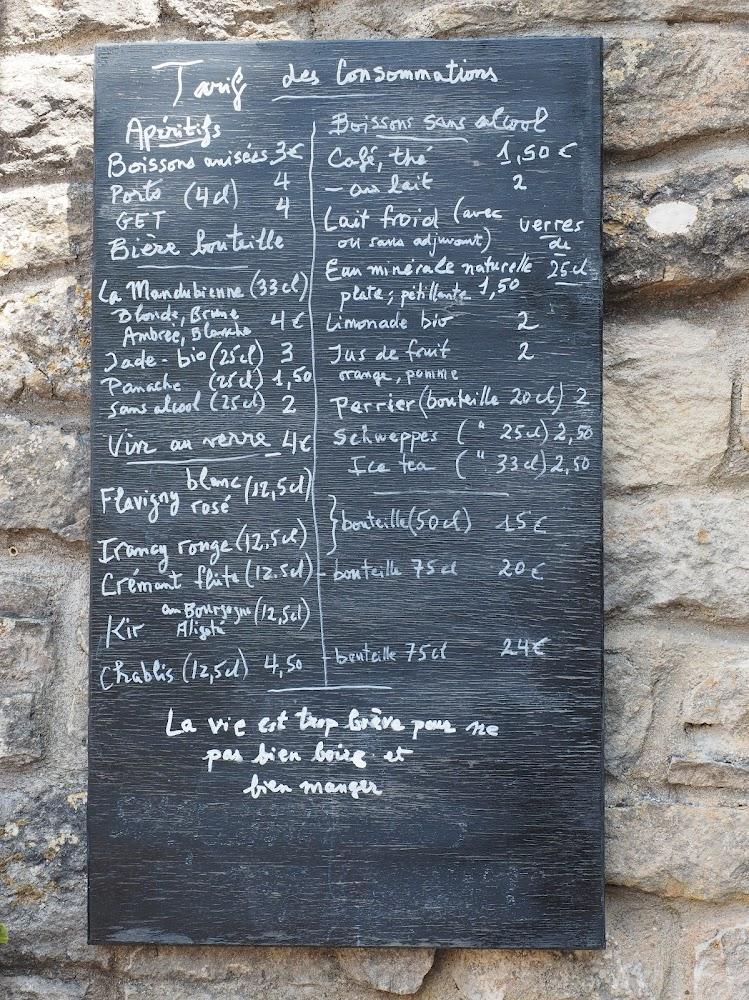 Tarif des Consommations
Apéritifs
Boissons anisées 3€
Porto (4cl) 4
GET 4
Bière bouteille
La Mandubienne (33cl)
Blonde, Brune
Ambrée, Blanche 4€
Jade - bio (25cl) 3
Panache (25cl) 1,50
sans alcool (25cl) 2
Vin au verre 4€
Flavigny blanc (12,5cl)
rosé
Irancy rouge (12,5cl)
Crémant flûte (12.5cl)
Kir au Bourgogne (12,5cl)
Aligoté
Chablis (12,5cl) 4,50
Boissons sans alcool
Café, thé 1,50 €
- au lait 2
Lait froid (avec
ou sans adjuvant)
verres
de
25cl
Eau minérale naturelle
plate, pétillante 1,50
Limonade bio 2
Jus de fruit 2
orange, pomme
Perrier (bouteille 20cl) 2
Schweppes ( " 25cl) 2,50
Ice tea ( " 33cl) 2,50
} bouteille (50cl) 15€
- bouteille 75cl 20€
- bouteille 75cl 24€
La vie est trop brève pour ne
pas bien boire et
bien manger